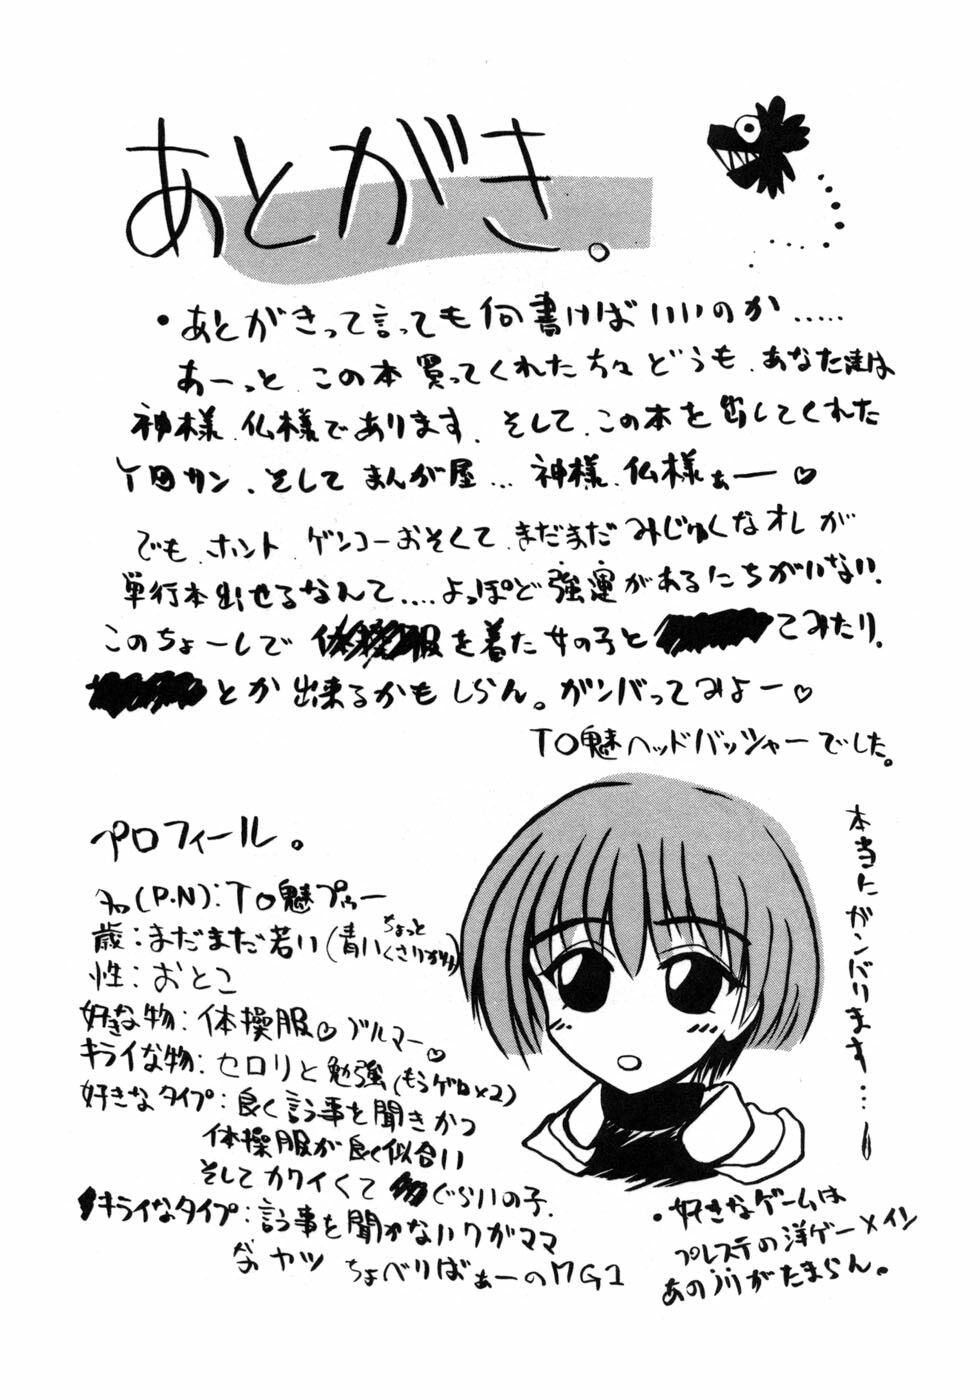 あとがき。
・あとがきって言っても何書けばいいのか.....
あーっと この本買ってくれた方々どうも、あなた達は
神様、仏様であります、そして、この本を出してくれた
そしてまんが屋... 神様、仏様ぁー♡
でも、ホント ゲンコーおそくて、まだまだみじゅくなオレが
単行本出せるなんて....よっぽど強運があるにちがいない、
このちょーしで 体操服を着た女の子と てみたり、
とか出来るかもしらん。ガンバってみよー♡
TO魅ヘッドバッシャーでした。
プロフィール。
本当にガンバります...
(P.N):TO魅プゥー
歳:まだまだ若い(青い ちょっとくさりかけ)
性:おとこ
好きな物:体操服♡ブルマー♡
キライな物:セロリと勉強(もうゲロ×2)
好きなタイプ:良く言う事を聞きかつ
体操服が良く似合い
そしてカワイくて ぐらいの子、
キライなタイプ:言う事を聞かないワガママ
なヤツ ちょべりばぁーのMG1
・好きなゲームは
プレステの洋ゲーメイン
あのノリがたまらん。